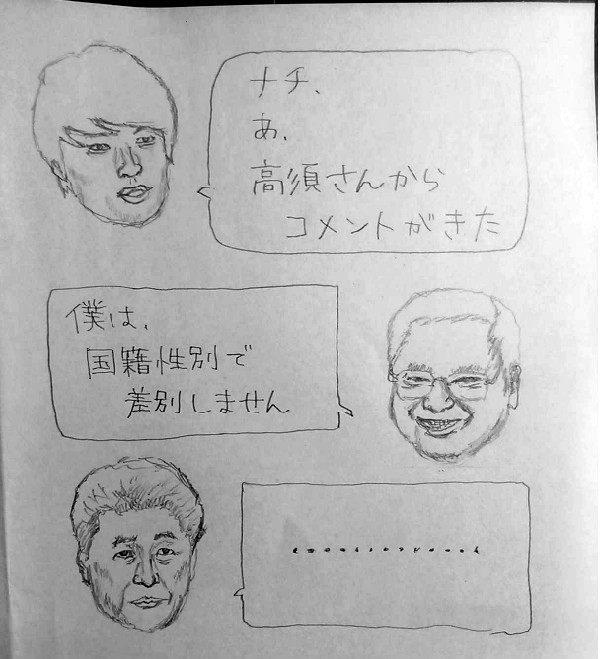 ナチ、
あ、
高須さんから
コメントがきた
僕は、
国籍性別で
差別しません
............